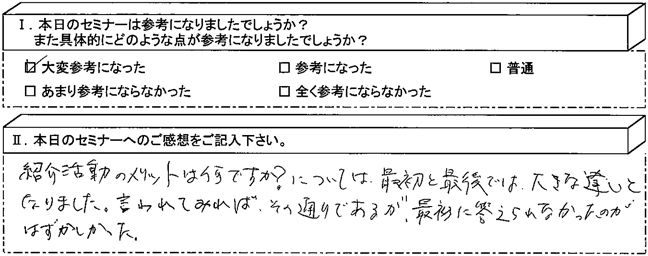 Ⅰ．本日のセミナーは参考になりましたでしょうか？
また具体的にどのような点が参考になりましたでしょうか？
☑ 大変参考になった □ 参考になった □ 普通
□ あまり参考にならなかった □ 全く参考にならなかった
Ⅱ．本日のセミナーへのご感想をご記入下さい。
紹介活動のメリットは何ですか？については、最初と最後では、大きな違いと
なりました。言われてみれば、その通りであるが、最初に答えられなかったのが
はずかしかった。